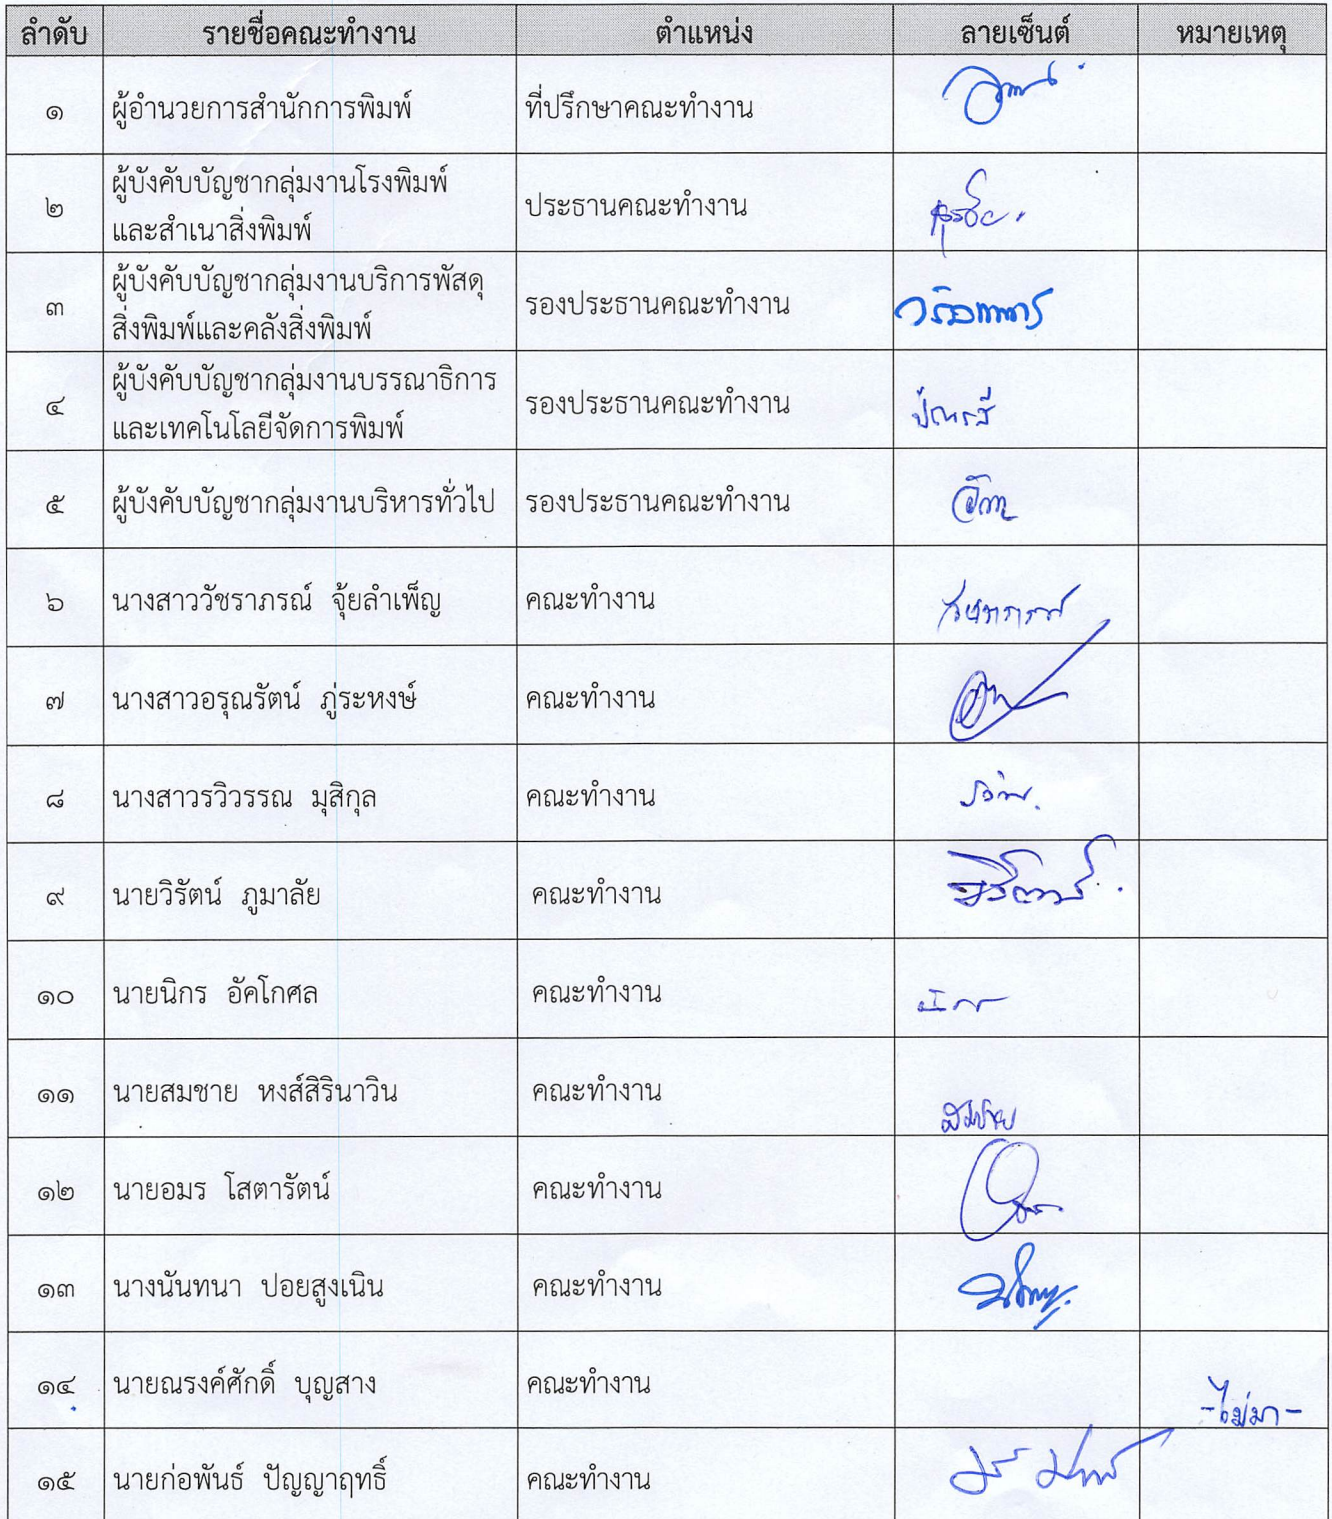 ลำดับ รายชื่อคณะทำงาน ตำแหน่ง ลายเซ็นต์ หมายเหตุ
๑ ผู้อำนวยการสำนักการพิมพ์ ที่ปรึกษาคณะทำงาน
๒ ผู้บังคับบัญชากลุ่มงานโรงพิมพ์
และสำเนาสิ่งพิมพ์ ประธานคณะทำงาน
๓ ผู้บังคับบัญชากลุ่มงานบริการพัสดุ
สิ่งพิมพ์และคลังสิ่งพิมพ์ รองประธานคณะทำงาน
๔ ผู้บังคับบัญชากลุ่มงานบรรณาธิการ
และเทคโนโลยีจัดการพิมพ์ รองประธานคณะทำงาน
๕ ผู้บังคับบัญชากลุ่มงานบริหารทั่วไป รองประธานคณะทำงาน
๖ นางสาววัชราภรณ์ จุ้ยลำเพ็ญ คณะทำงาน
๗ นางสาวอรุณรัตน์ ภู่ระหงษ์ คณะทำงาน
๘ นางสาวรวิวรรณ มุสิกุล คณะทำงาน
๙ นายวิรัตน์ ภูมาลัย คณะทำงาน
๑๐ นายนิกร อัคโกศล คณะทำงาน
๑๑ นายสมชาย หงส์สิรินาวิน คณะทำงาน สมชาย
๑๒ นายอมร โสตารัตน์ คณะทำงาน
๑๓ นางนันทนา ปอยสูงเนิน คณะทำงาน
๑๔ นายณรงค์ศักดิ์ บุญสาง คณะทำงาน -ไม่มา-
๑๕ นายก่อพันธ์ ปัญญาฤทธิ์ คณะทำงาน